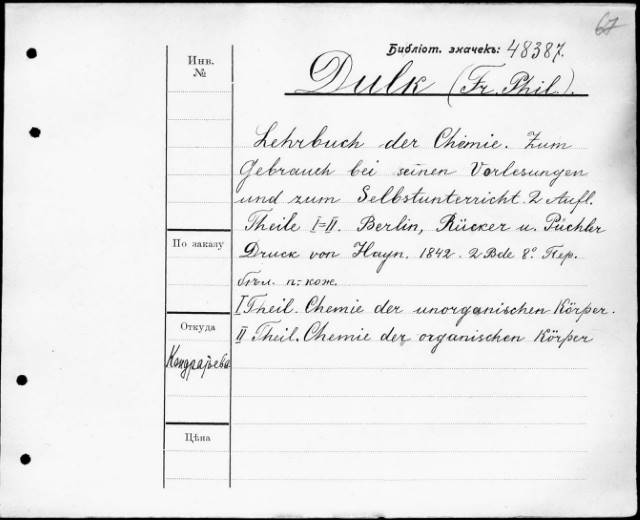 67
Библіот. значекъ: 48387.
Инв.
№
Dulk (Fr. Phil.).
Lehrbuch der Chemie. Zum
Gebrauch bei seinen Vorlesungen
und zum Selbstunterricht. 2 Aufl.
Theile I-II. Berlin, Rücker u. Püchler
По заказу
Druck von Hayn. 1842. 2 Bde 8º. Пер.
п.-кож.
I Theil. Chemie der unorganischen Körper.
Откуда
II Theil. Chemie der organischen Körper
Кондратьева
Цѣна